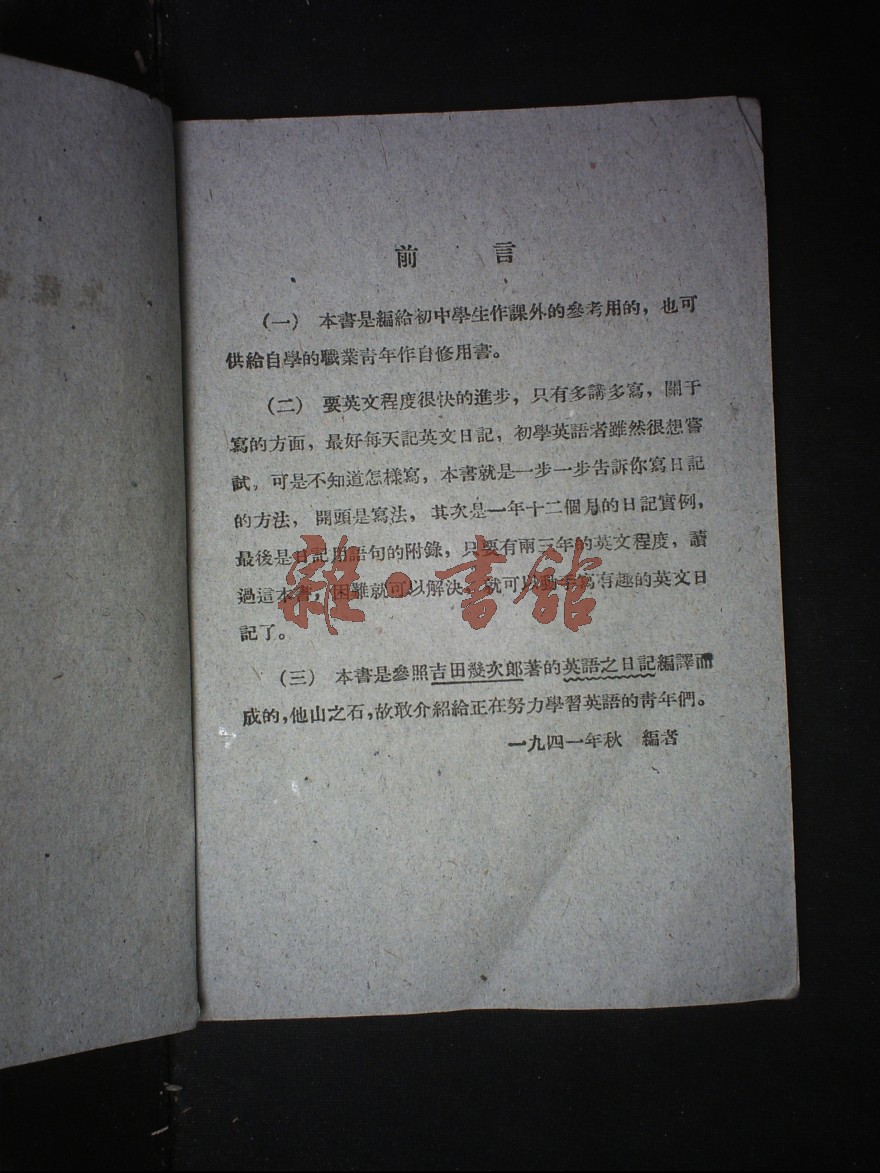 前 言
(一) 本書是編給初中學生作課外的參考用的，也可
供給自學的職業靑年作自修用書。
(二) 要英文程度很快的進步，只有多講多寫，關于
寫的方面，最好每天記英文日記，初學英語者雖然很想嘗
試，可是不知道怎樣寫，本書就是一步一步告訴你寫日記
的方法，開頭是寫法，其次是一年十二個月的日記實例，
最後是日記用語句的附錄，只要有兩三年的英文程度，讀
過這本書，困難就可以解決，就可以動手寫有趣的英文日
記了。
(三) 本書是參照吉田幾次郎著的英語之日記編譯而
成的，他山之石，故敢介紹給正在努力學習英語的靑年們。
一九四一年秋 編者
雜·書館